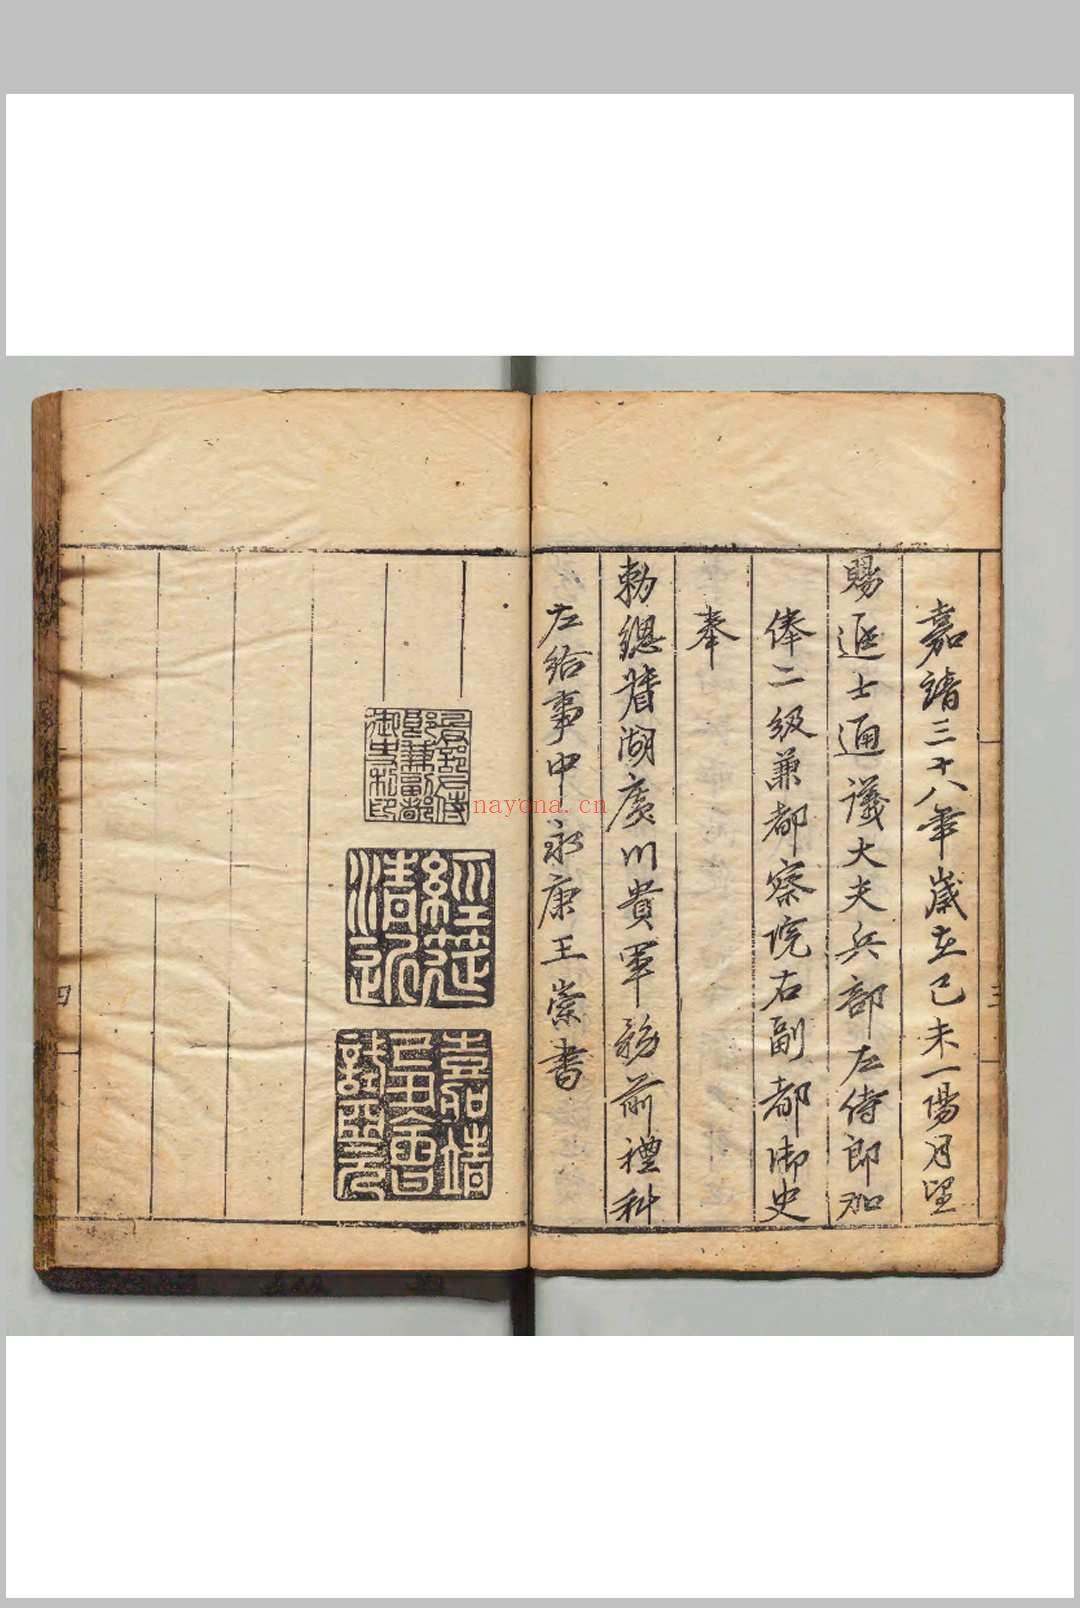 嘉靖三十八年歲在己未一陽月望
賜進士通議大夫兵部左侍郎加
俸二級兼都察院右副都御史
奉
勅總督湖廣川貴軍務前禮科
左給事中永康王崇書
三
經筵
嘉靖
四
nayona.cn